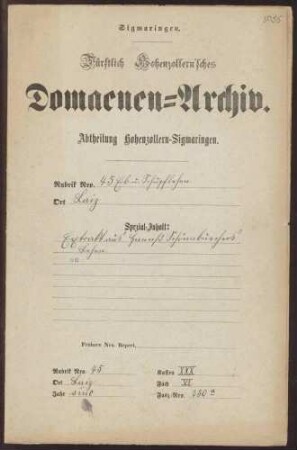 Sigmaringen.
Fürstlich Hohenzollern'sches
Domaenen=Archiv.
Abtheilung Hohenzollern-Sigmaringen.
Rubrik Nro. 45 Erb- u. Schupflehen
Ort Laiz
Spezial-Inhalt:
Extrakt aus Schönbuchers
Lehen
Frühere Nro. Repert.
Rubrik Nro. 45 Kasten XXX
Ort Laiz Fach VI
Jahr sine Fasz.-Nro.